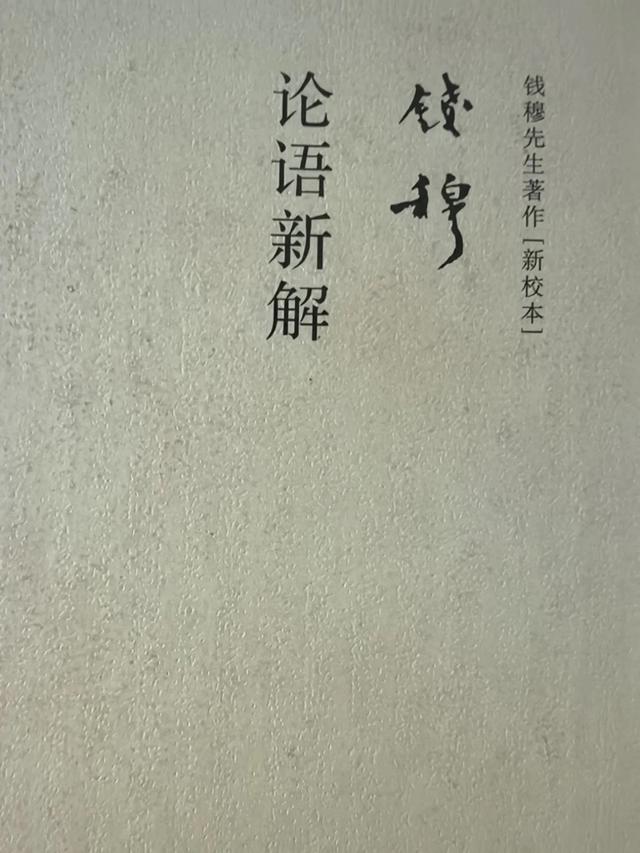 钱穆先生著作[新校本]
錢穆
论语新解